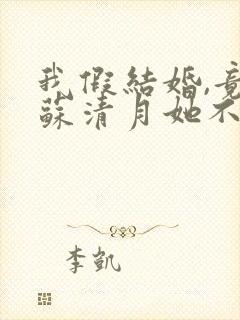 我假結婚,竟
蘇清月她不
李凱